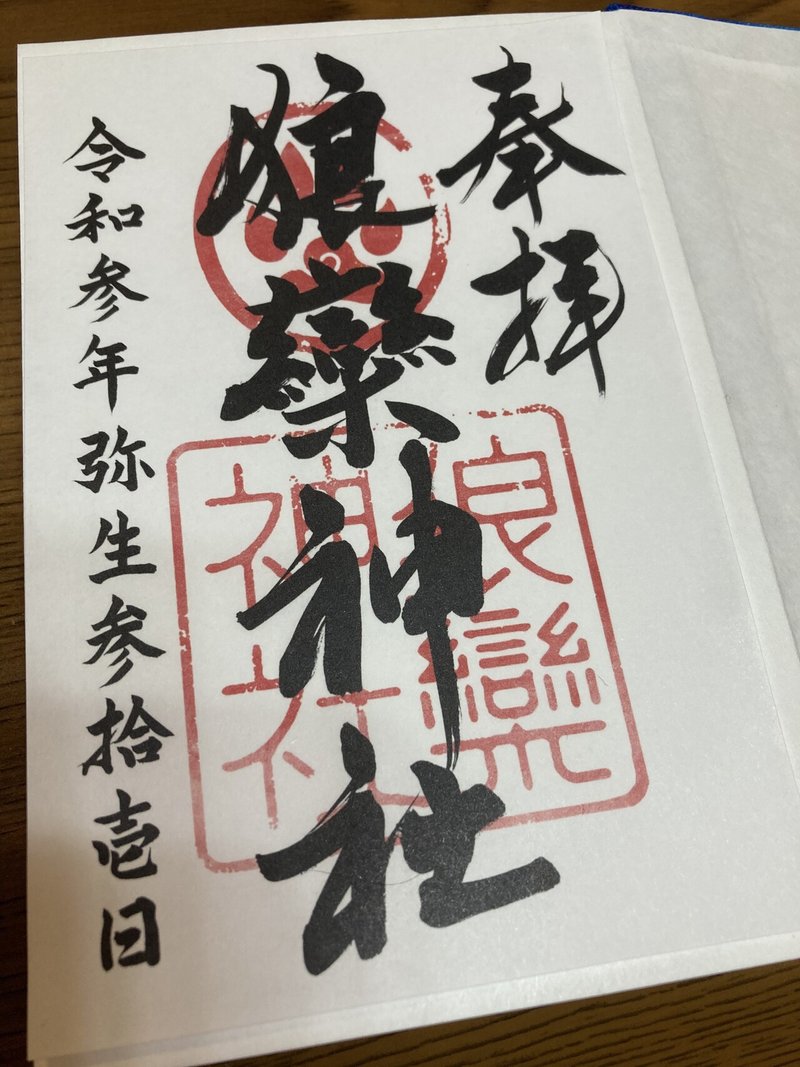 奉拝
欒神社
令和参年弥生参拾壱日
欒
神社